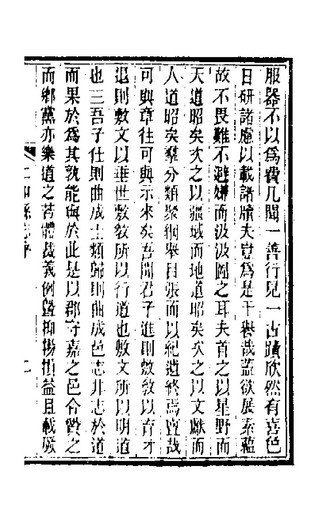 服器不以爲費凡聞一善行見一古蹟欣然有喜色
日研諸慮以載諸牘夫豈爲是干譽哉蓋欲展素蘊
故不畏難不避嫌而汲汲圖之耳夫首之以星野而
天道昭矣次之以疆域而地道昭矣次之以文獻而
人道昭矣羣分類聚綱舉目張而以紀遺終焉亶哉
可與章往可與示來矣吾聞君子進則敷敎以育才
退則敷文以垂世敷敎所以行道也敷文所以明道
也三吾子仕則曲成士類歸則曲成邑志非志於道
而果於爲其孰能與於此是以郡守嘉之邑令贊之
而鄉黨亦樂道之若體裁義例籩抑揚損益且載厥